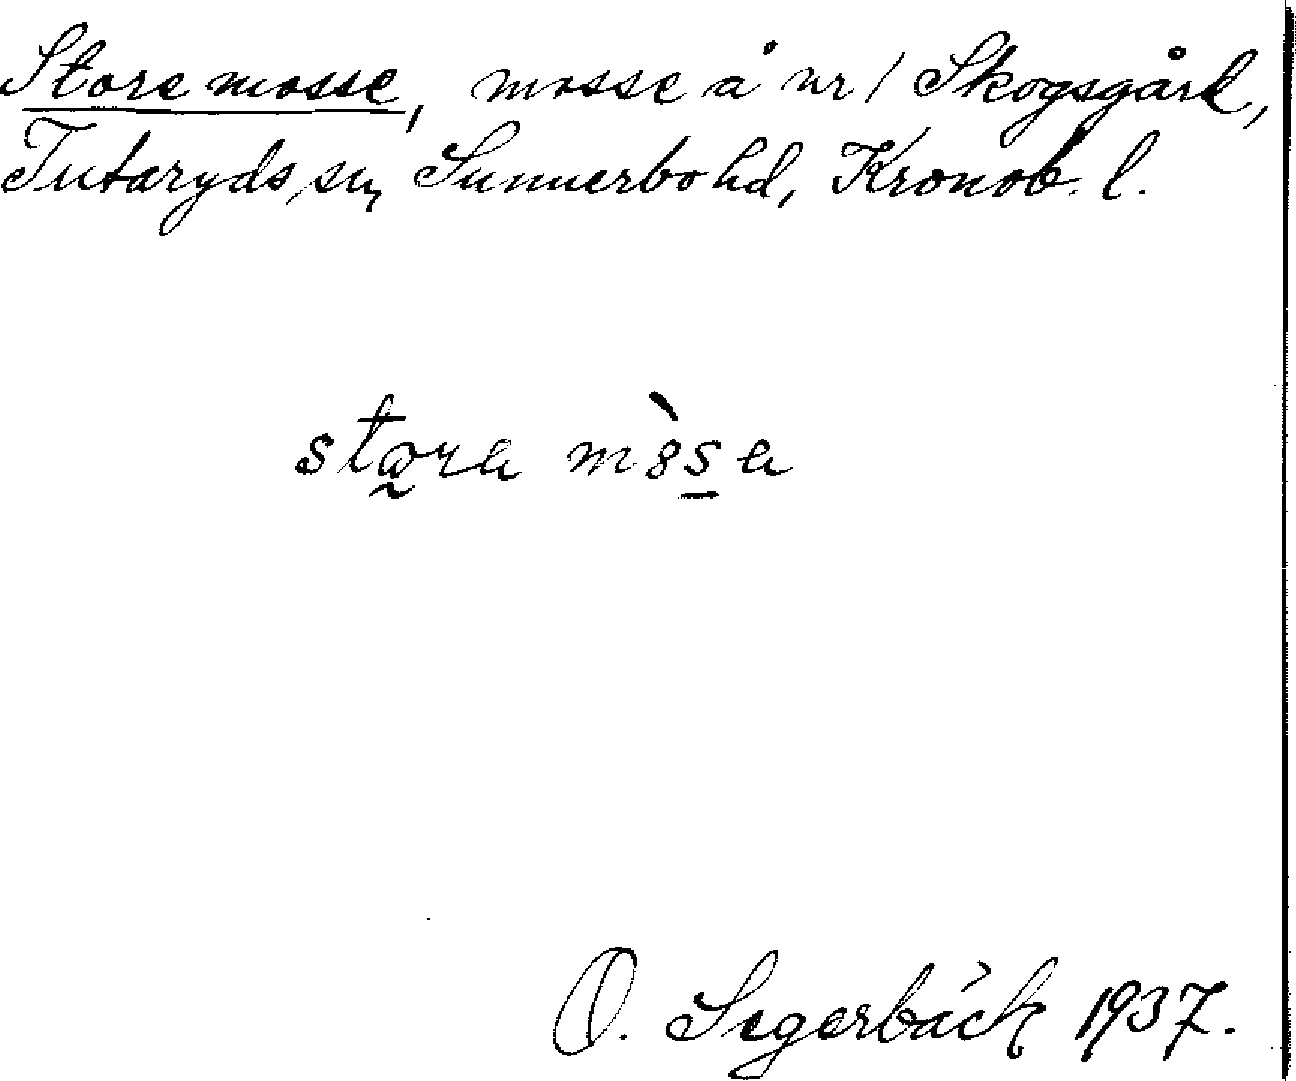 Store mosse, mosse å nr 1 Skogsgård,
Tutaryds sn, Sunnerbo hd, Kronob. l.
O. Segerbäck 1937.